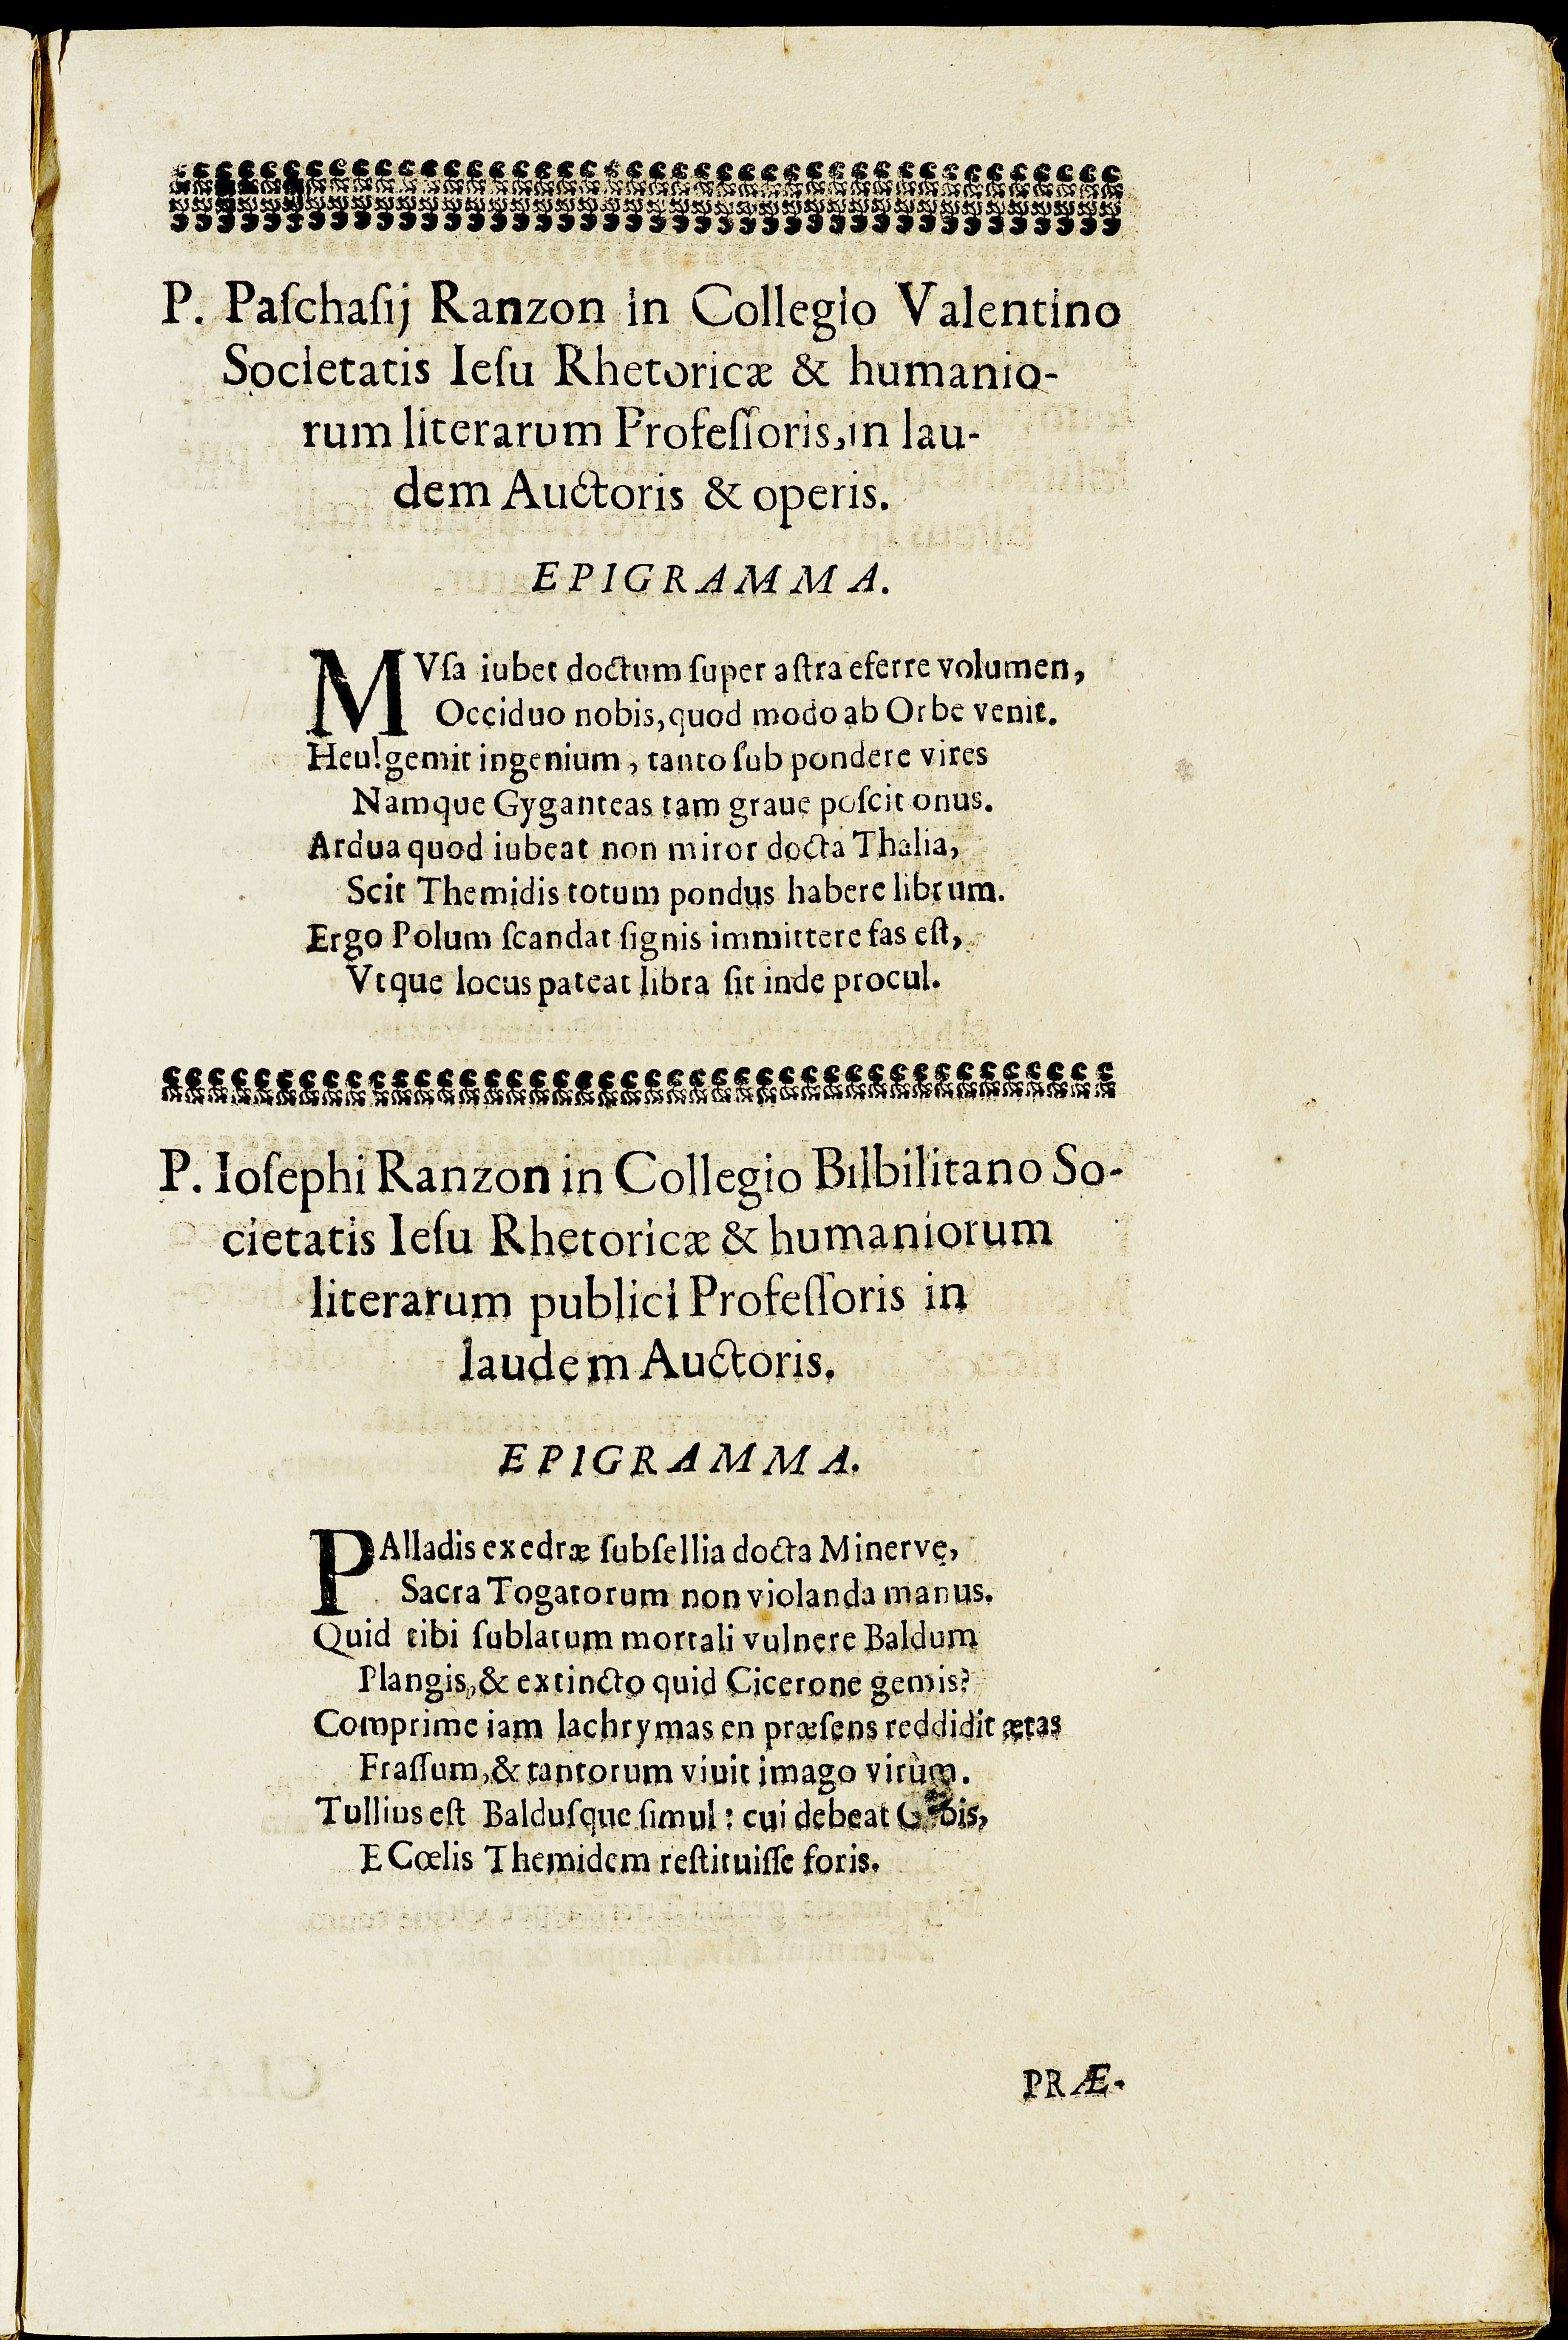 P. Paſchaſij Ranzon in Collegio Valentino
Societatis Ieſu Rhetoricæ & humanio-
rum literarum Profeſſoris, in lau-
dem Auctoris & operis.
EPIGRAMMA.
MVſa iubet doctum ſuper aſtra eferre volumen,
Occiduo nobis, quod modo ab Orbe venit.
Heu! gemit ingenium, tanto ſub pondere vires
Namque Gyganteas tam graue poſcit onus.
Ardua quod iubeat non miror docta Thalia,
Scit Themidis totum pondus habere librum.
Ergo Polum ſcandat ſignis immittere fas eſt,
Vtque locus pateat libra ſit inde procul.
P. Ioſephi Ranzon in Collegio Bilbilitano So-
cietatis Ieſu Rhetoricæ & humaniorum
literarum publici Profeſſoris in
laudem Auctoris.
EPIGRAMMA.
PAlladis exedræ ſubſellia docta Minervę,
Sacra Togatorum non violanda manus.
Quid tibi ſublatum mortali vulnere Baldum
Plangis, & extincto quid Cicerone gemis?
Comprime iam lachrymas en præſens reddidit ætas
Fraſſum, & tantorum viuit imago virùm.
Tullius eſt Balduſque ſimul: cui debeat
E Cœlis Themidem reſtituiſſe foris.
PRÆ-